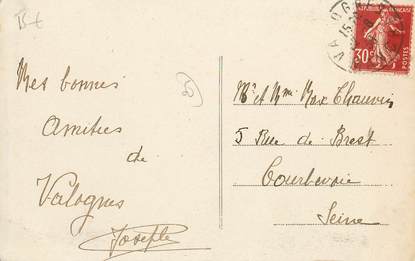 Mes bonnes
Amitiés
de
Valognes
Joseph
Mr et Mme Max Chauvin
5 Rue de Brest
Courbevoie
Seine
REPUBLIQUE FRANÇAISE
30c
POSTES
VALOGNES
15